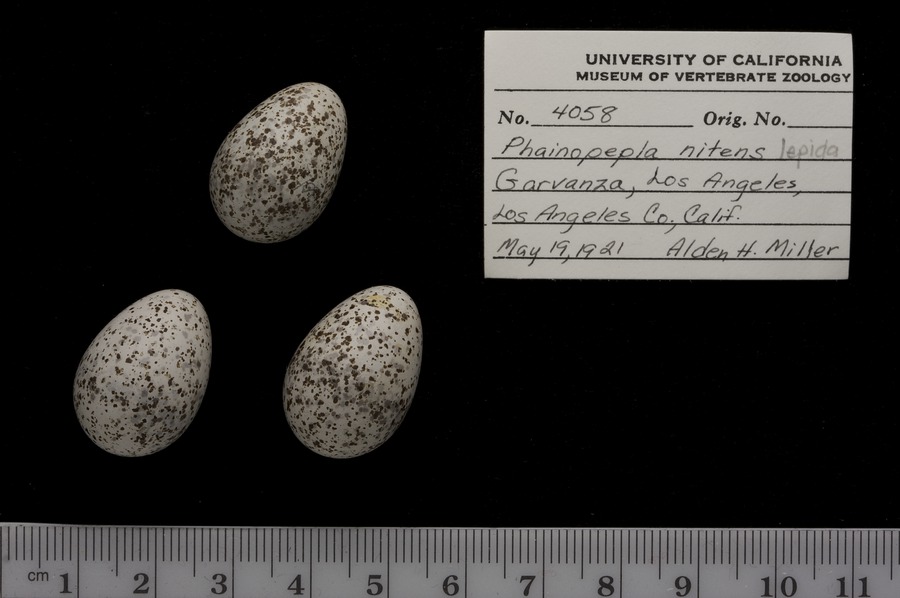 UNIVERSITY OF CALIFORNIA
MUSEUM OF VERTEBRATE ZOOLOGY
No. 4058 Orig. No.
Phainopepla nitens lepida
Garvanza, Los Angeles,
Los Angeles Co., Calif.
May 19, 1921 Alden H. Miller
cm 1 2 3 4 5 6 7 8 9 10 11